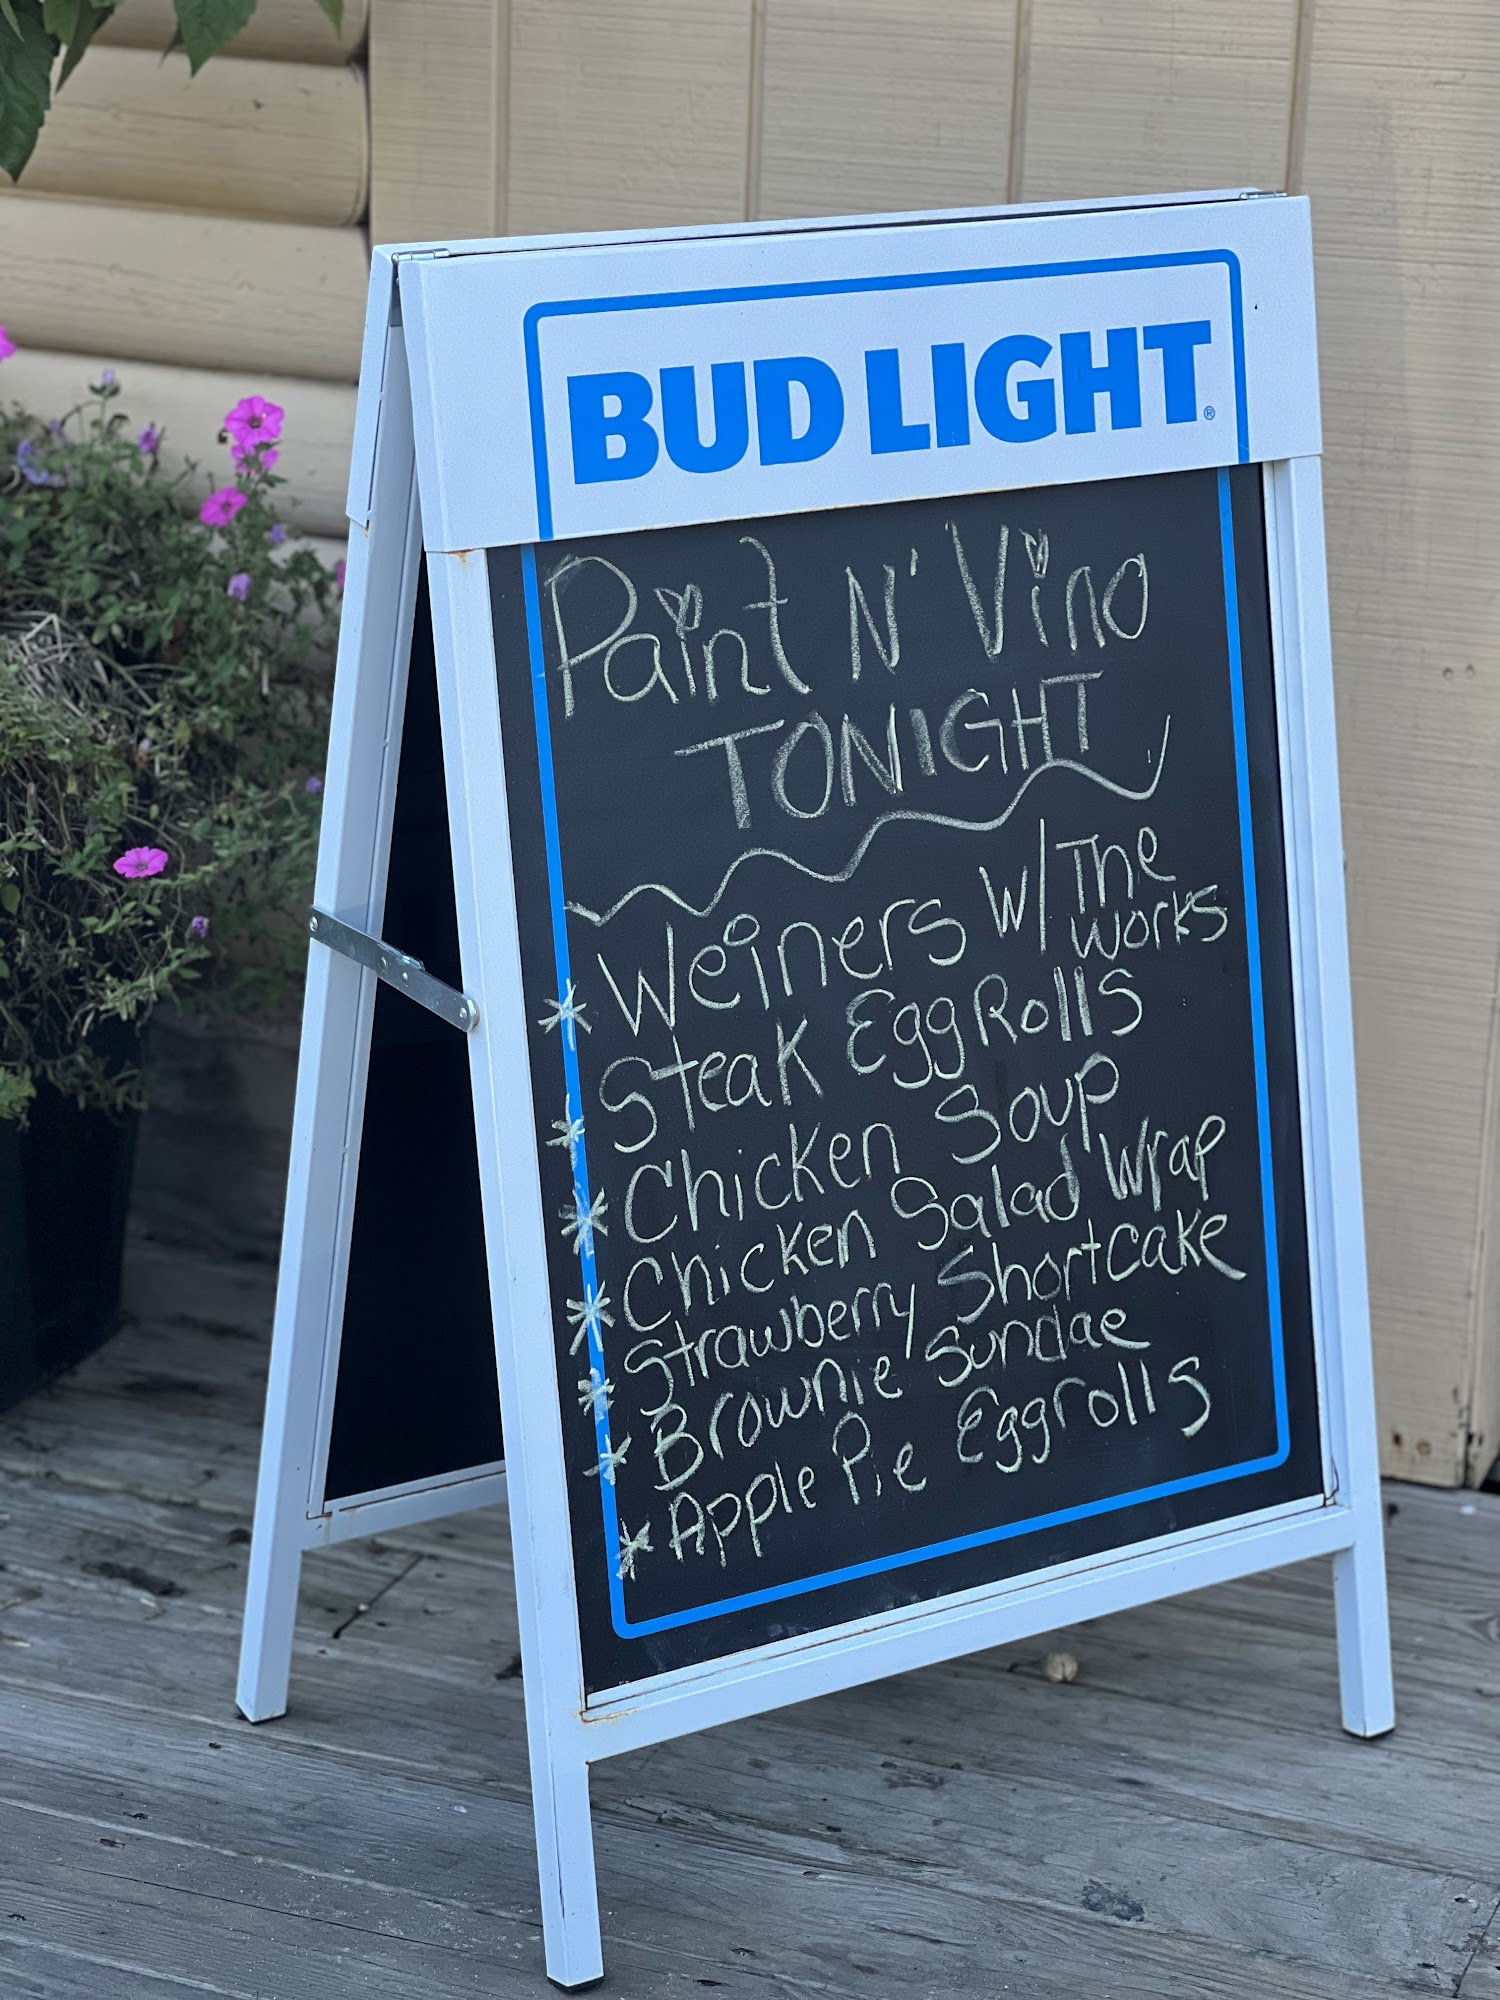 BUD LIGHT®
Paint N' Vino
TONIGHT
* Weiners w/ The Works
* Steak Egg Rolls
* Chicken Soup
* Chicken Salad Wrap
* Strawberry Shortcake
* Brownie Sundae
* Apple Pie Eggrolls